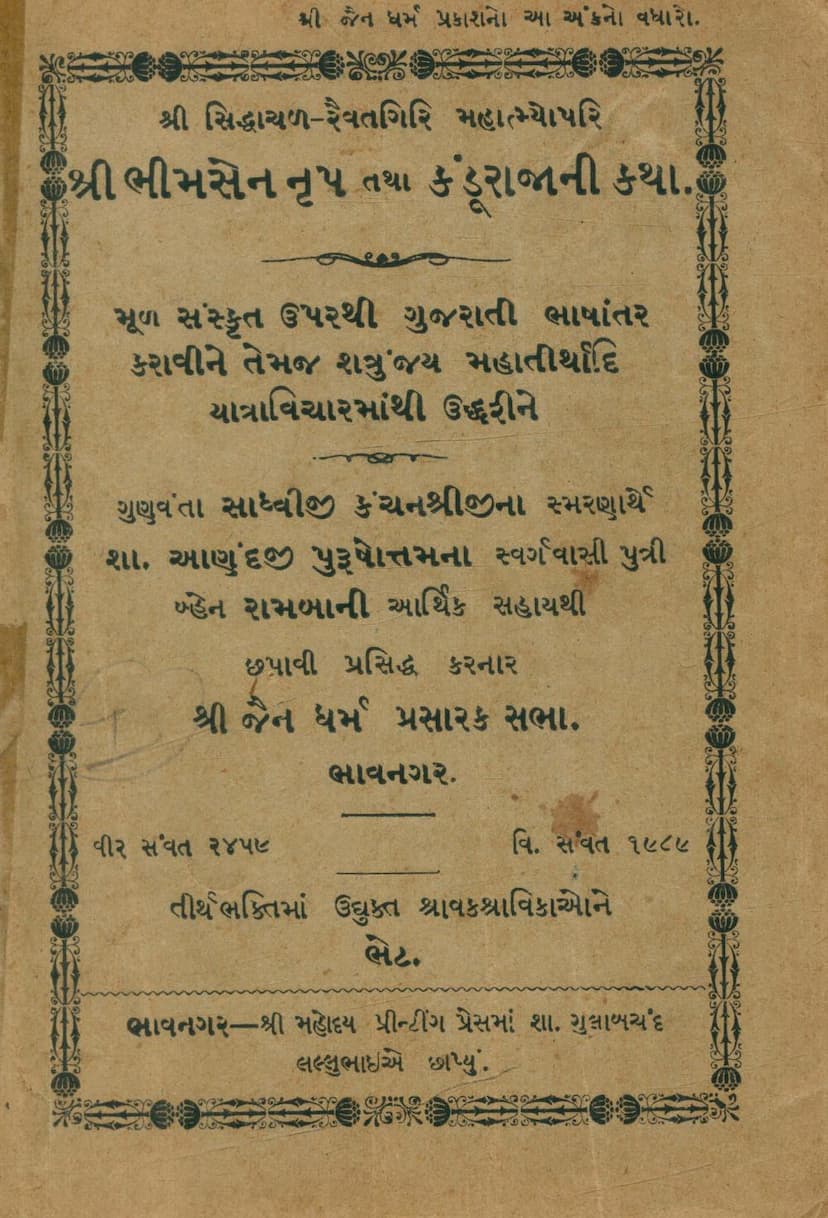 શ્રી જૈન ધર્મ પ્રકાશનો આ અંકનો વધારો.
શ્રી સિદ્ધાચળ-રૈવતગિરિ મહાત્મ્યોપરિ
શ્રી ભીમસેન નૃપ તથા કંડૂરાજાની કથા.
મૂળ સંસ્કૃત ઉપરથી ગુજરાતી ભાષાંતર
કરાવીને તેમજ શત્રુંજય મહાતીર્થાદિ
યાત્રાવિચારમાંથી ઉદ્ધરીને
ગુણવંતા સાધ્વીજી કંચનશ્રીજીના સ્મરણાર્થે
શા. આણંદજી પુરૂષોત્તમના સ્વર્ગવાસી પુત્રી
બ્હેન રામબાની આર્થિક સહાયથી
છપાવી પ્રસિદ્ધ કરનાર
શ્રી જૈન ધર્મ પ્રસારક સભા.
ભાવનગર.
વીર સંવત ૨૪૫૯ વિ. સંવત ૧૯૮૯
તીર્થભક્તિમાં ઉદ્યુક્ત શ્રાવકશ્રાવિકાઓને
ભેટ.
ભાવનગર—શ્રી મહોદય પ્રીન્ટીંગ પ્રેસમાં શા. ગુલાબચંદ
લલ્લુભાઇએ છાપ્યું.